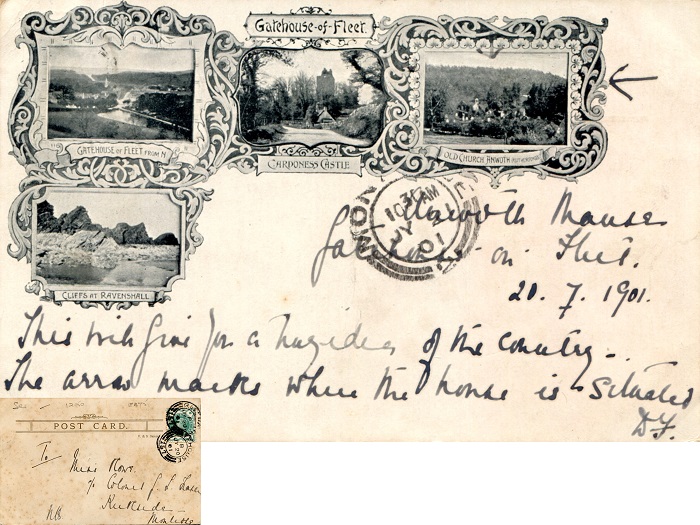 Gatehouse-of-Fleet.
GATEHOUSE OF FLEET FROM N
CARDONESS CASTLE
OLD CHURCH ANWOTH
CLIFFS AT RAVENSHALL
10 AM
JY 21
01
Anwoth Manse
Gatehouse on Fleet.
20. 7. 1901.
This will give you a hazy idea of the country -
The arrow marks where the house is situated
D.F.
POST CARD.
To
Miss Rowe
c/o Colonel
Montrose
NB